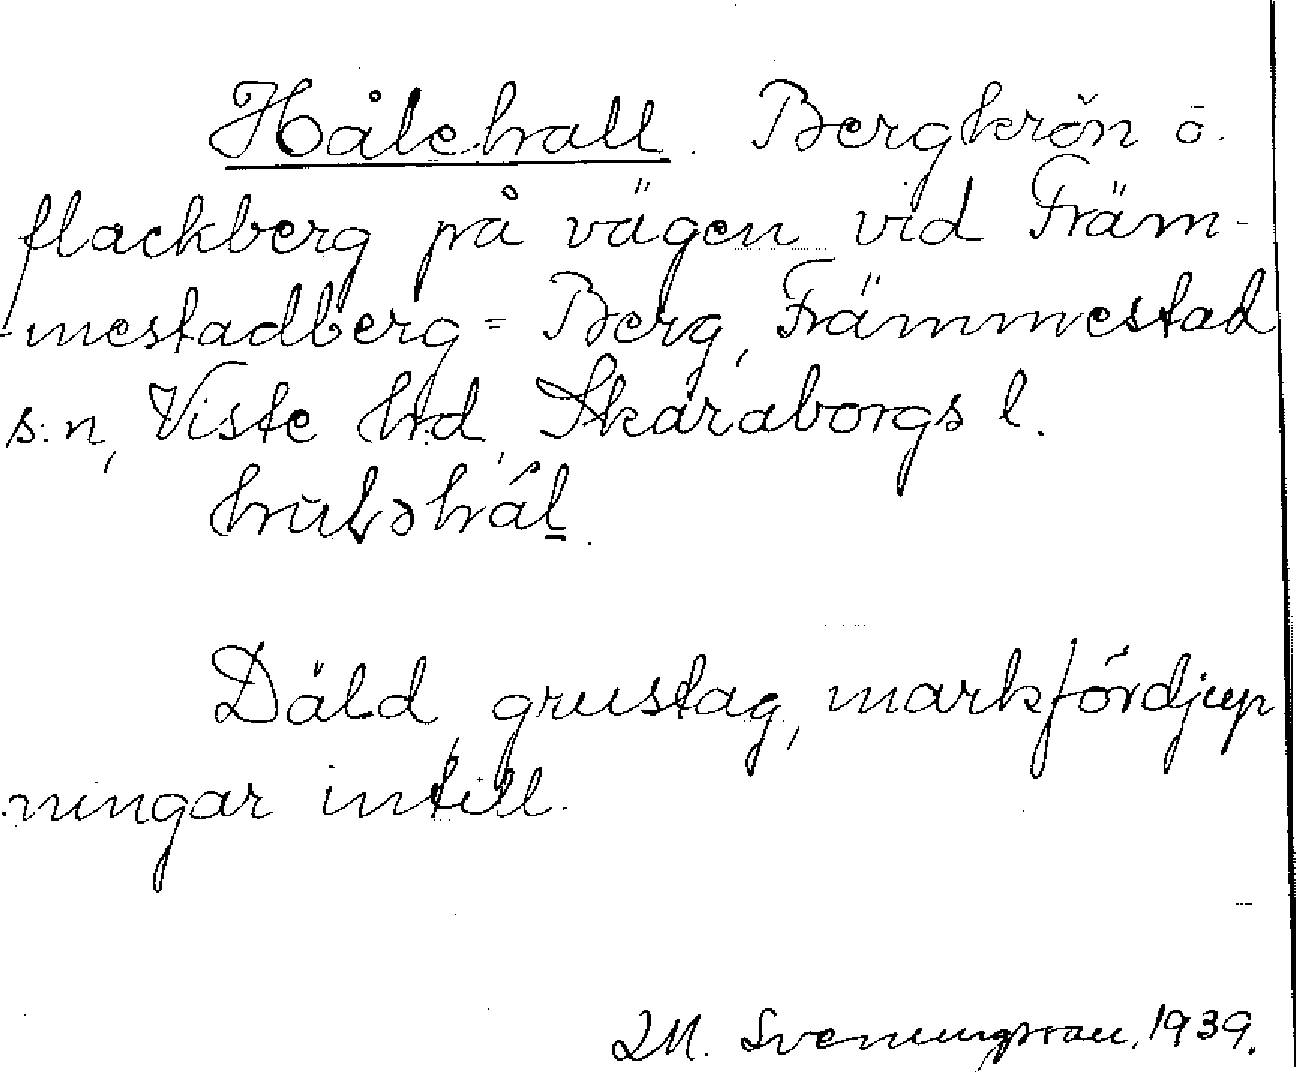 Hålehall. Bergkrön o.
flackberg på vägen vid Främ-
mestadberg = Berg, Främmestad
s:n, Viste hd, Skaraborgs l.
Däld, grustag, markfördjup
ningar intill.
1939.